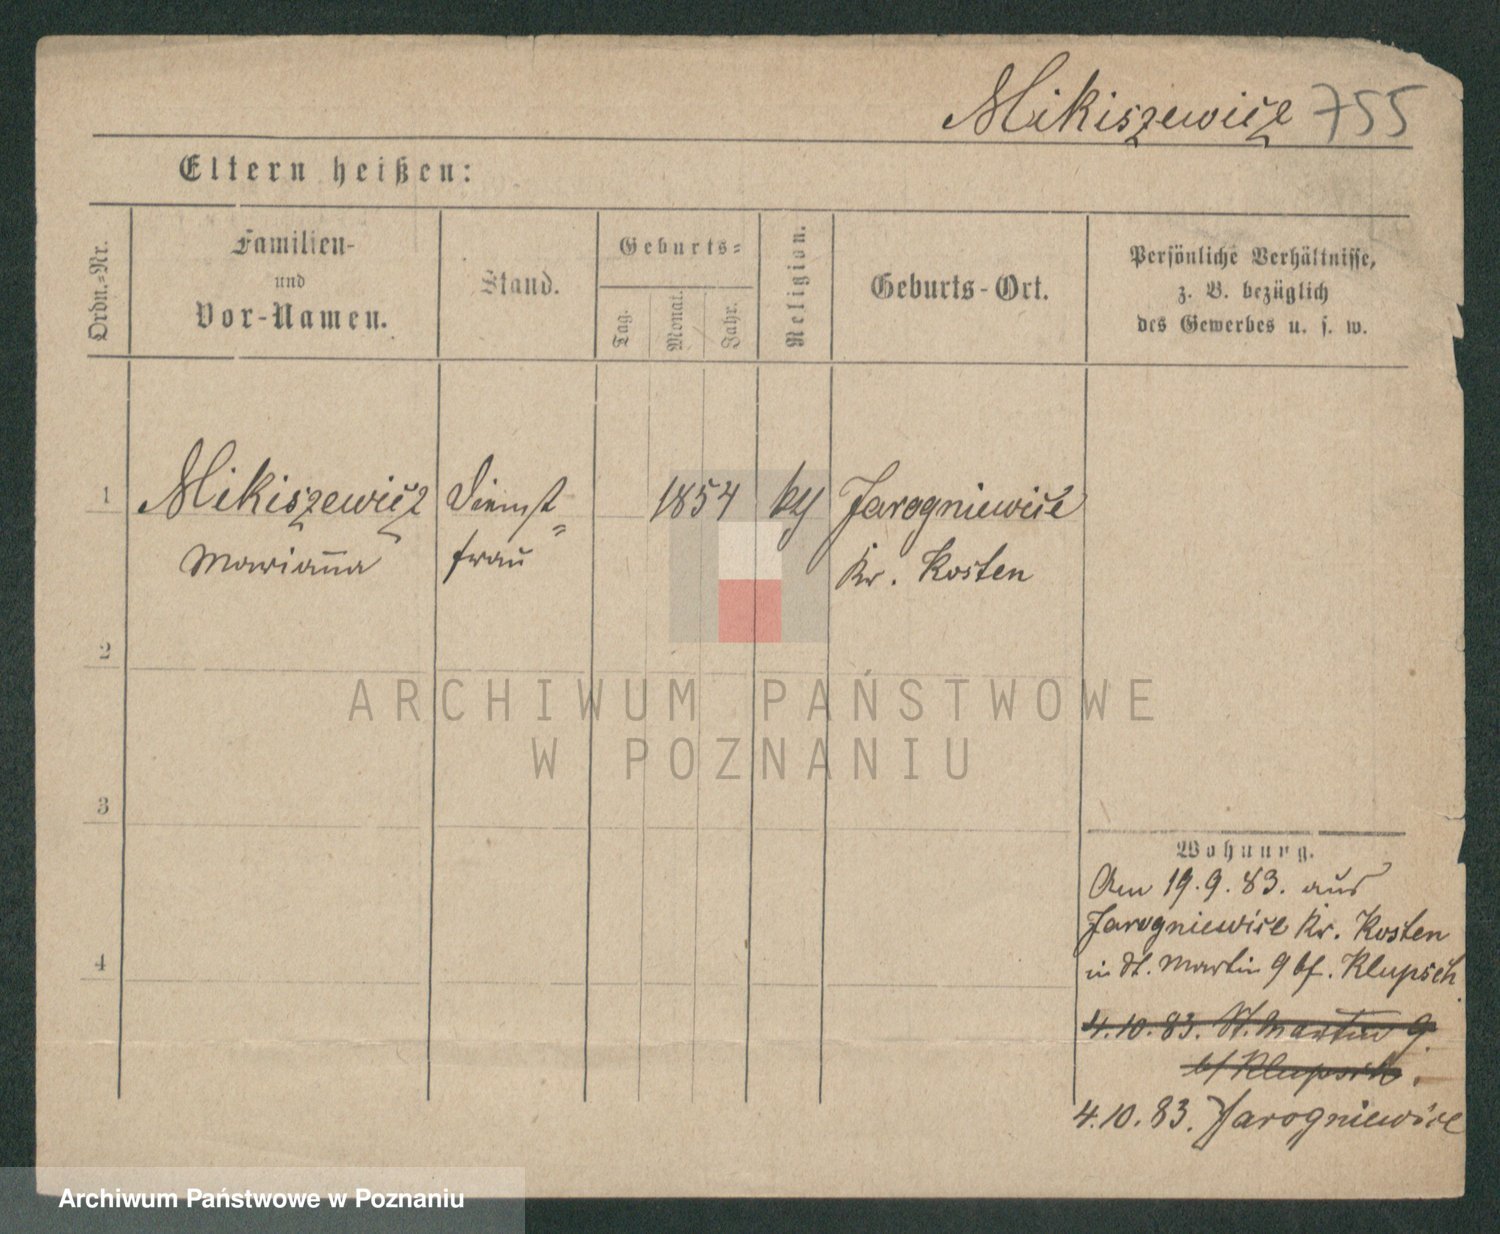 Mikiszewicz 755
Eltern heißen:
Ordn.-Nr.
Familien-
und
Vor-Namen.
Stand.
Geburts-
Tag.
Monat.
Jahr.
Religion.
Geburts-Ort.
Persönliche Verhältnisse,
z. B. bezüglich
des Gewerbes u. s. w.
1 Mikiszewicz Dienst= 1854 Jarogniewice
Marianna frau Kr. Kosten
2
3
4
Wohnung.
Am 19.9.83. aus
Jarogniewice Kr. Kosten
in St. Martin 9 bf. Klupsch.
4.10.83. St. Martin 9.
bf Klupsch.
4.10.83. Jarogniewice
ARCHIWUM PAŃSTWOWE
W POZNANIU
Archiwum Państwowe w Poznaniu